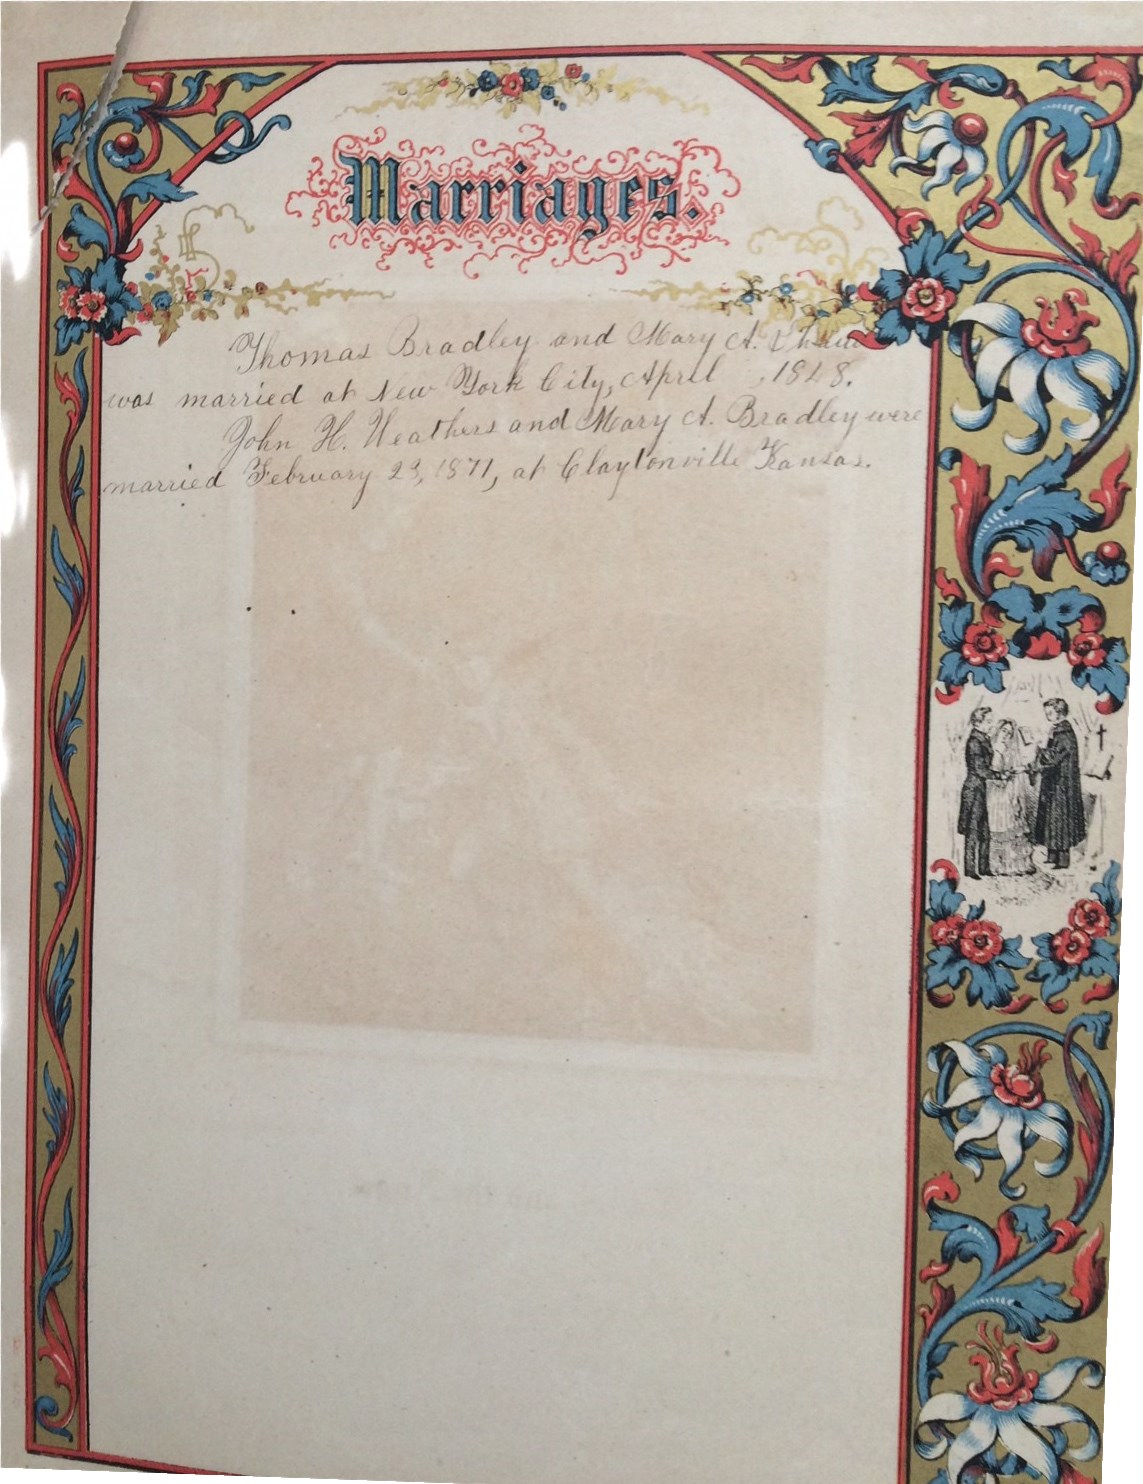 Marriages.
Thomas Bradley and Mary A.
was married at New York City, April , 1848.
John H. Weathers and Mary A. Bradley were
married February 23, 1871, at Claytonville Kansas.